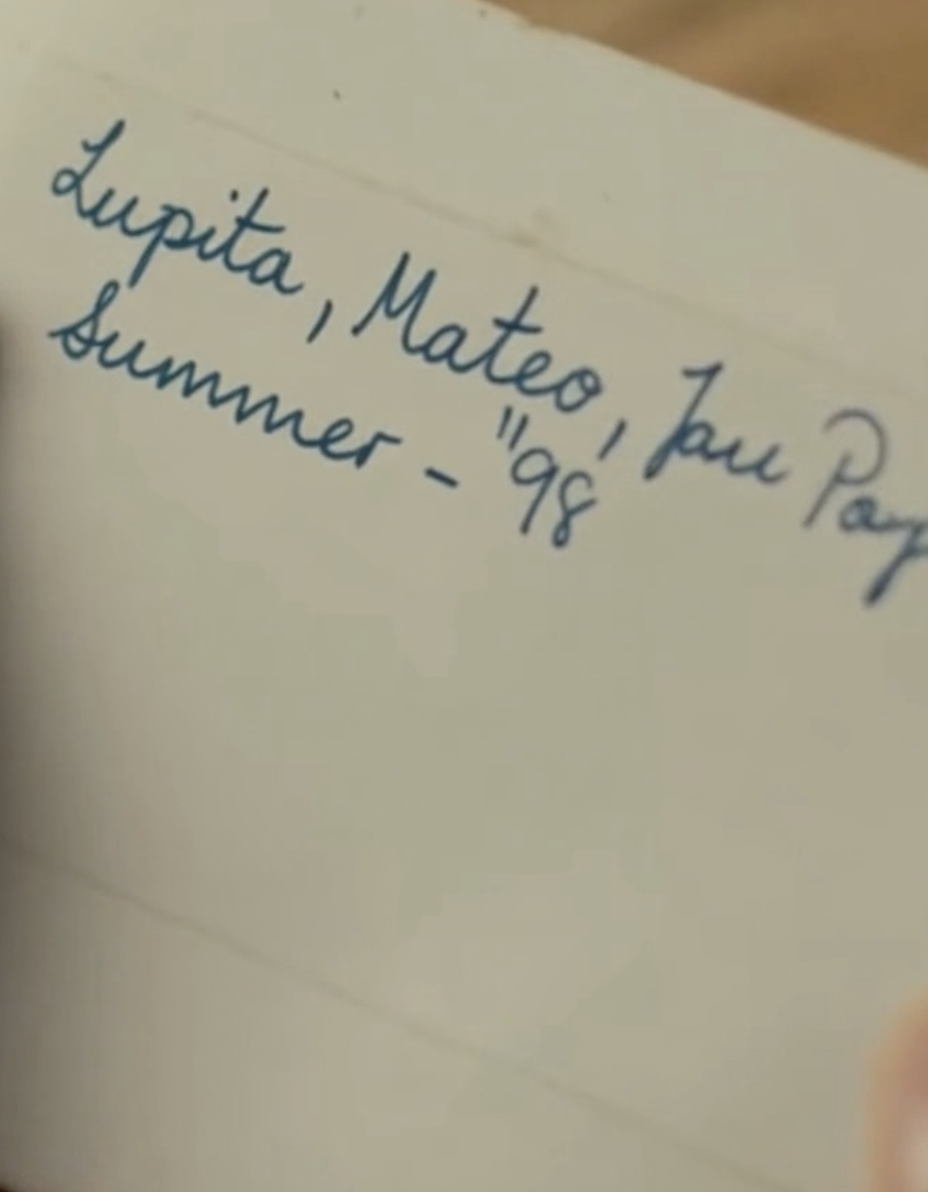 Lupita, Mateo, Jau Pay
Summer - "98